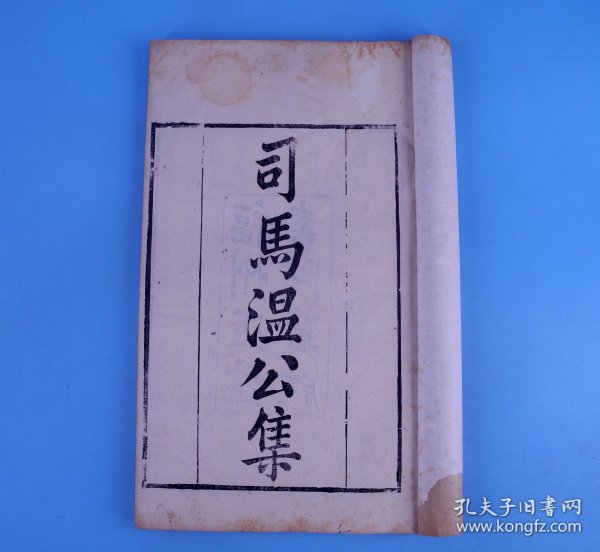 司馬温公集
孔夫子旧書网
www.kongfz.com